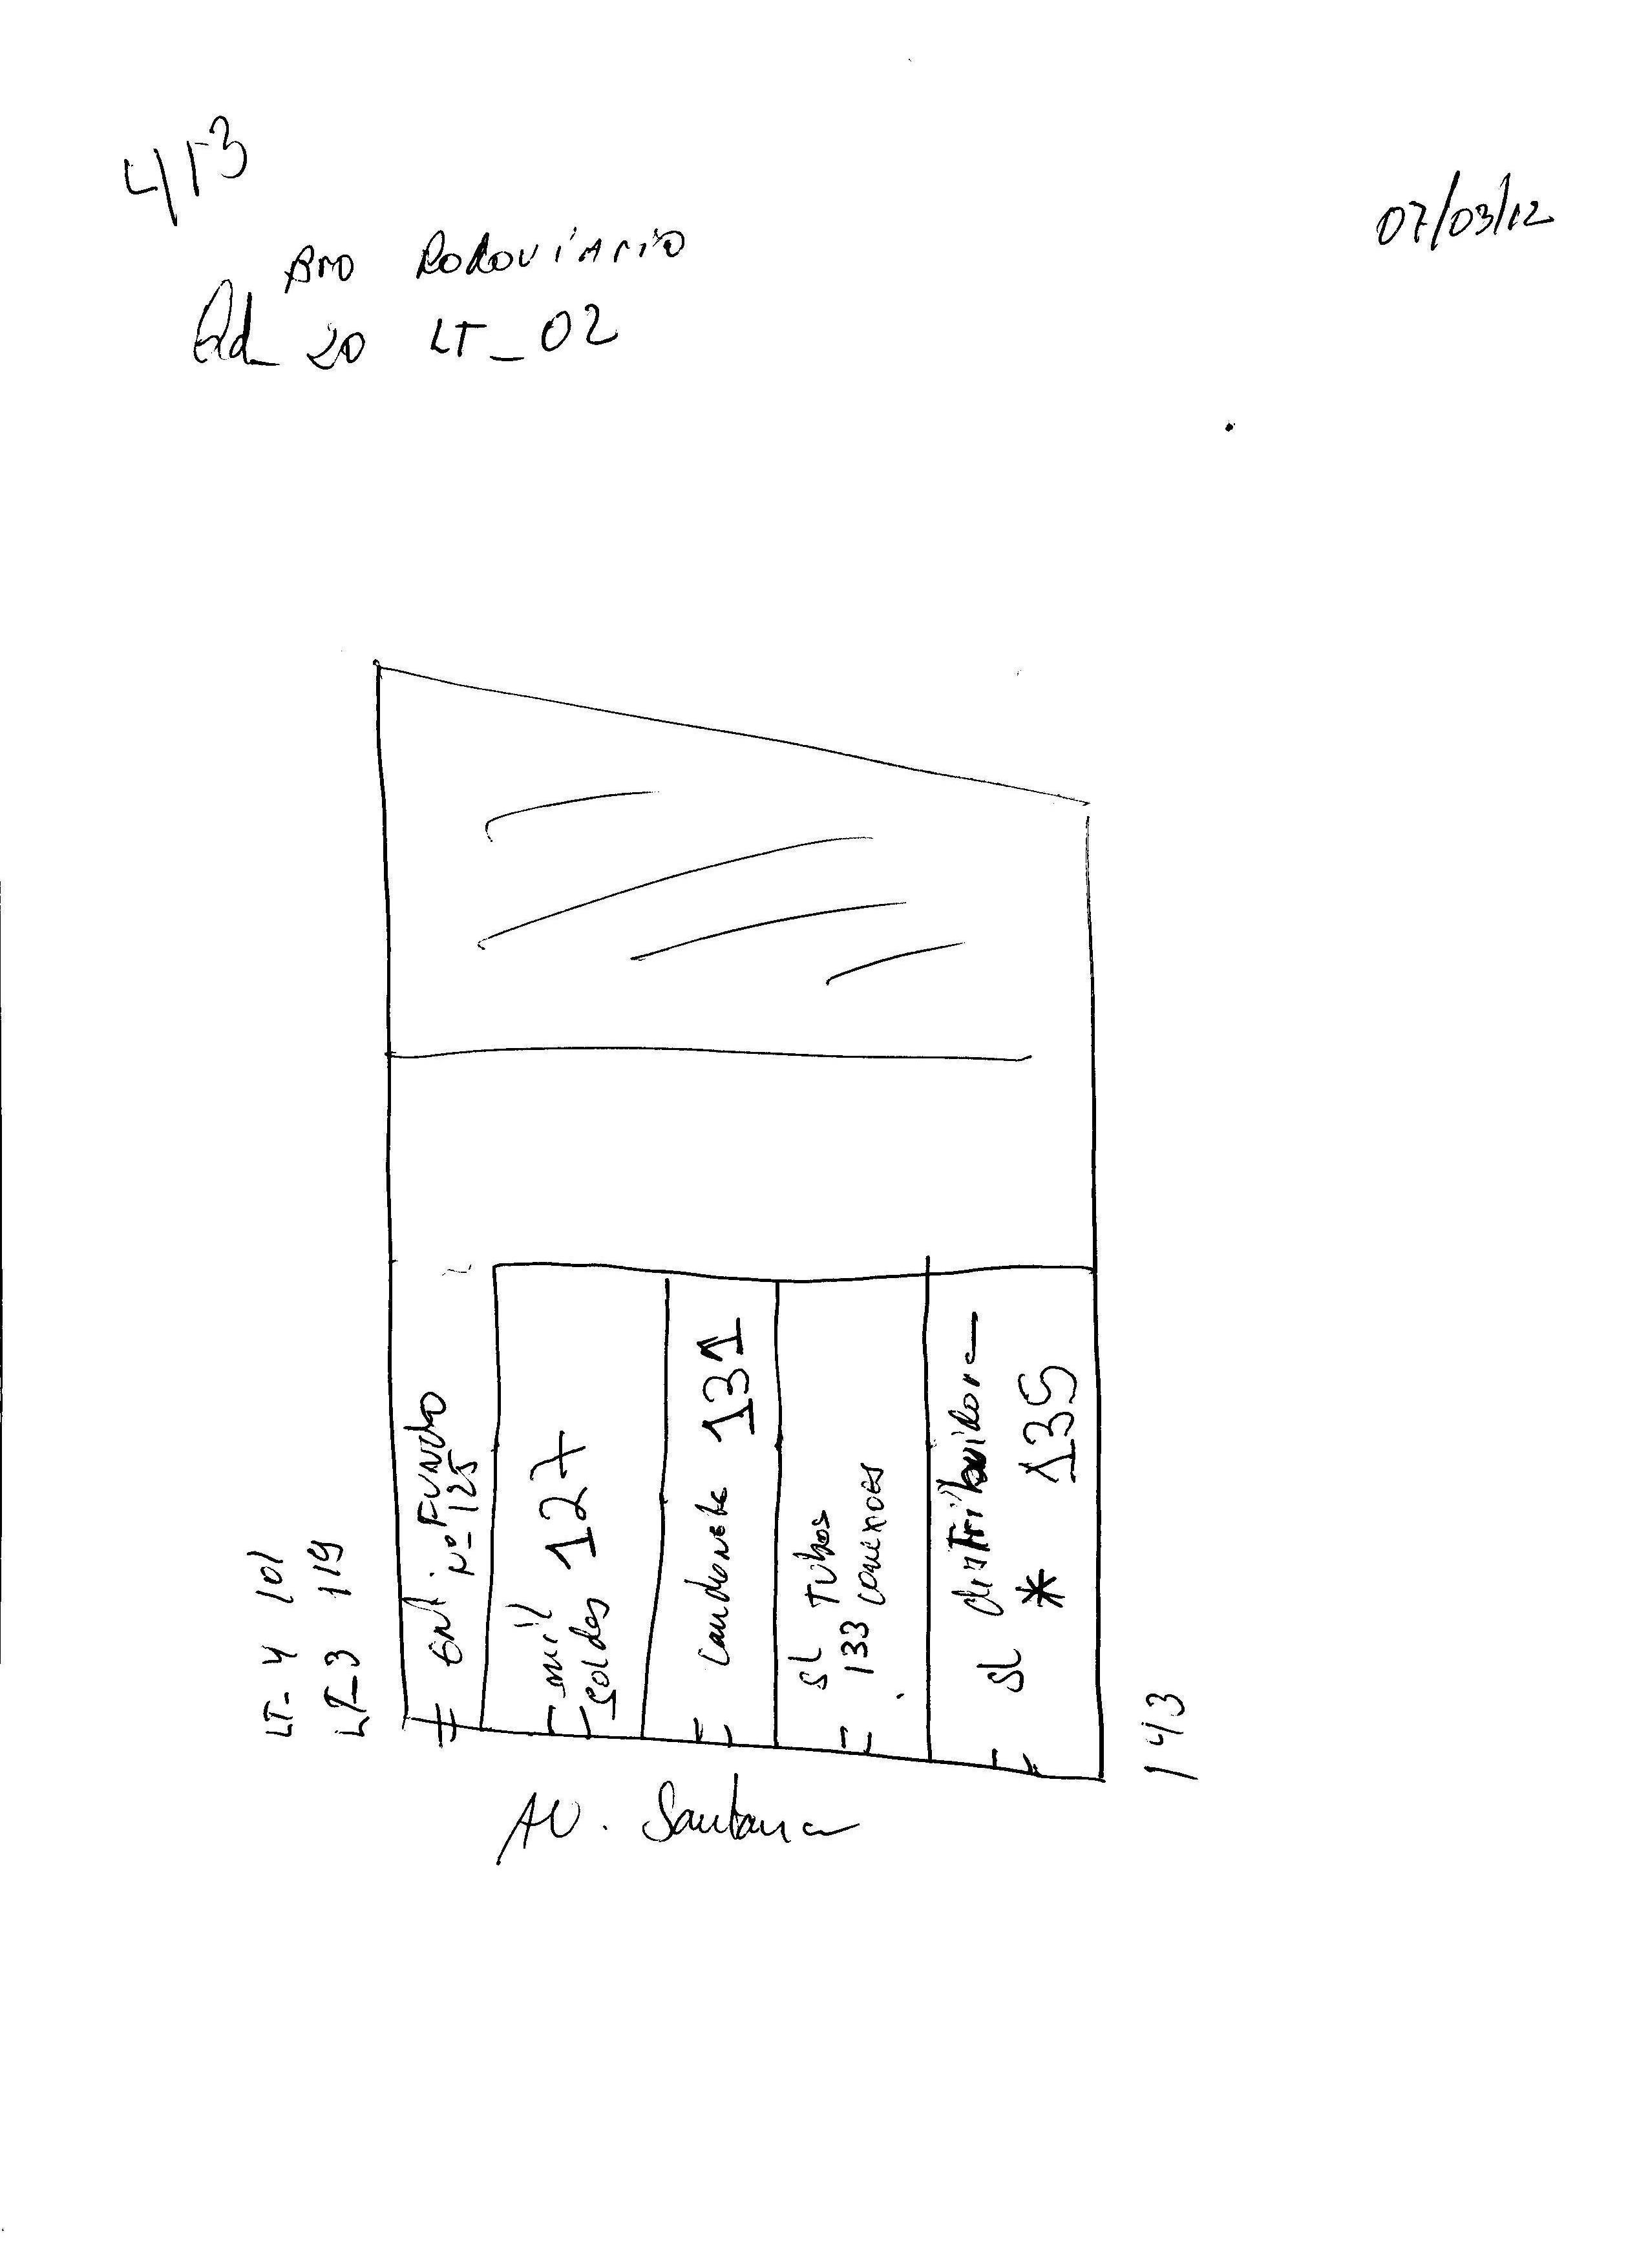 413
07/03/12
BRO RODOVIARIO
Qd 20 LT_02
LT-4 101
LT-3 119
ent. FUNDO
Nº 125
soldas 127
131
SL Tubos
133 conexoes
SL distribuidora
* 135
143
AV. Santana